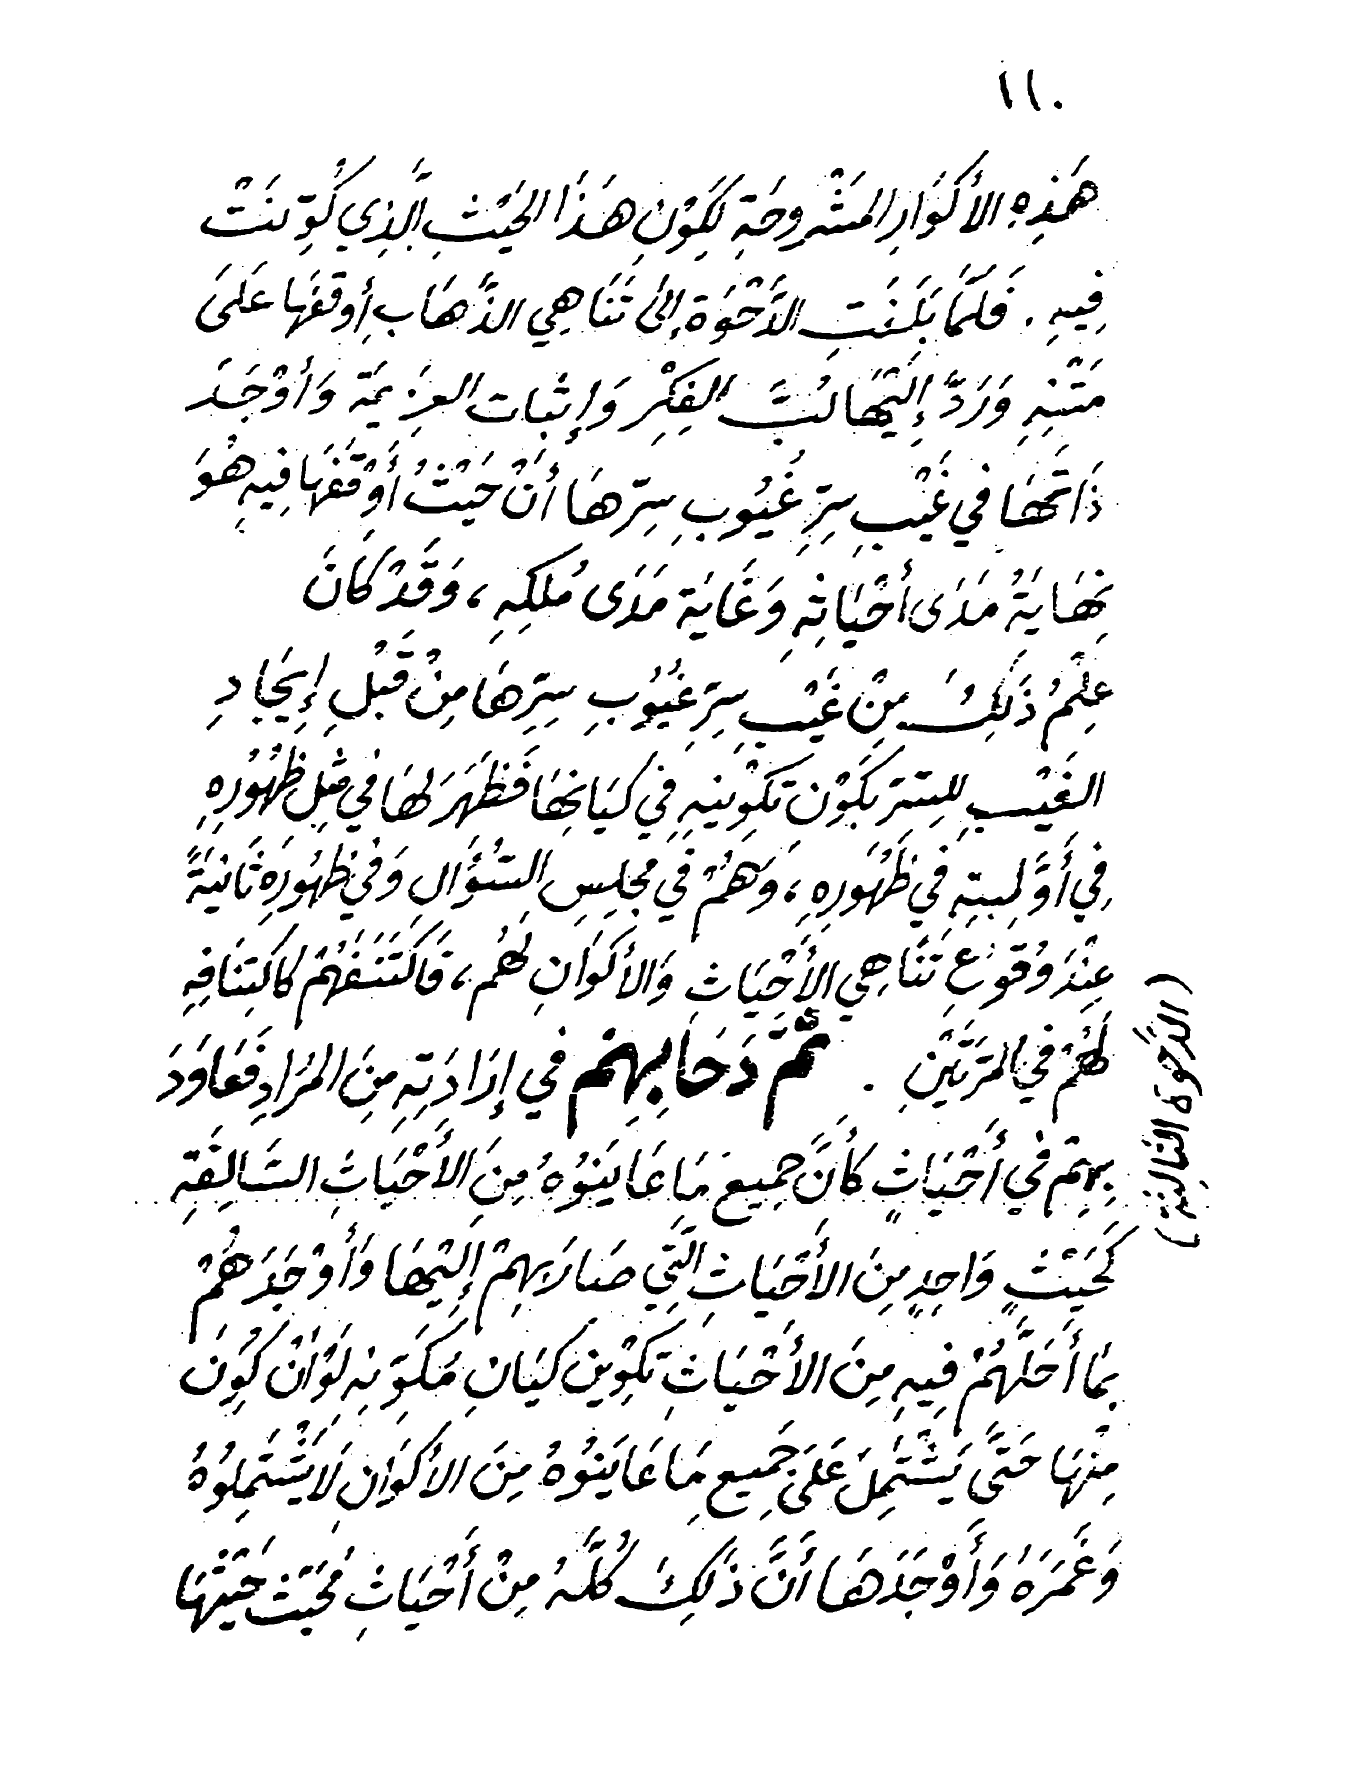 ١١٠
هَذِهِ الأَكْوَارِ المَشْرُوحَةِ لِكَوْنِ هَذَا الحَيْثِ الَّذِي كُوِّنَتْ
فِيهِ . فَلَمَّا بَلَغَتِ الدَّحْوَةُ إِلَى تَنَاهِي الذَّهَابِ أَوقَفَهَا عَلَى
مَتْنِهِ وَرَدَّ إِلَيْهَا لُبَّ الفِكْرِ وَإِثْبَاتَ العَزِيمَةِ وَأَوْجَدَ
ذَاتَهَا فِي غَيْبِ سِرِّ غُيُوبِ سِرِّهَا أَنْ حَيْثُ أَوْقَفَهَا فِيهِ هُوَ
نِهَايَةُ مَدَى أَحْيَاثِهِ وَغَايَة مَدَى مُلْكِهِ ، وَقَدْ كَانَ
عِلْمُ ذَلِكَ مِنْ غَيْبِ سِرِّ غُيُوبِ سِرِّهَا مِنْ قَبْلِ إِيجَادِ
الغَيْبِ لِلسِّرِّ بِكَوْنِ تَكْوِينِهِ فِي كَيَانِهَا فَظَهَرَ لَهَا فِي مِثْلِ ظُهُورِهِ
فِي أَوَّلِيتِهِ فِي ظُهُورِهِ ، وَهُمْ فِي مَجْلِسِ السُّؤَالِ وَفِي ظُهُورِهِ ثَانِيَةً
عِنْدَ وُقُوعِ تَنَاهِي الأَحْيَاثِ وَالأَكْوَانِ لَهُم ، فَاكْتَنَفَهُمْ كَاكْتِنَافِهِ
لَهُمْ فِي المَرَّتَيْنِ . ثُمَّ دَحَا بِهِم فِي إِرَادَتِهِ مِنَ المُرَادِ فَعَاوَدَ
(الدَّحْوَة الثَّالِثَة)
بِهِم فِي أَحْيَاثٍ كَأَنَّ جَمِيعَ مَا عَايَنُوهُ مِنَ الأَحْيَاثِ السَّالِفَةِ
كَحَيْثٍ وَاحِدٍ مِنَ الأَحْيَاثِ الَّتِي صَارَ بِهِمْ إِلَيْهَا وَأَوْجَدَهُمْ
بِمَا أَحَلَّهُمْ فِيهِ مِنَ الأَحْيَاثِ تَكْوِين كَيَانِ مُكَوِّنِهِ لَوْ أَنْ كُوِّنَ
مِنْهَا حَتَّى يَشْتَمِلَ عَلَى جَمِيعِ مَا عَايَنُوهُ مِنَ الأَكْوَانِ لَاشْتَمِلُوهُ
وَغَمَرَهُ وَأَوْجَدَهَا أَنَّ ذَلِكَ كُلَّهُ مِنْ أَحْيَاثِ مُحَيِّث حَيْثِهَا